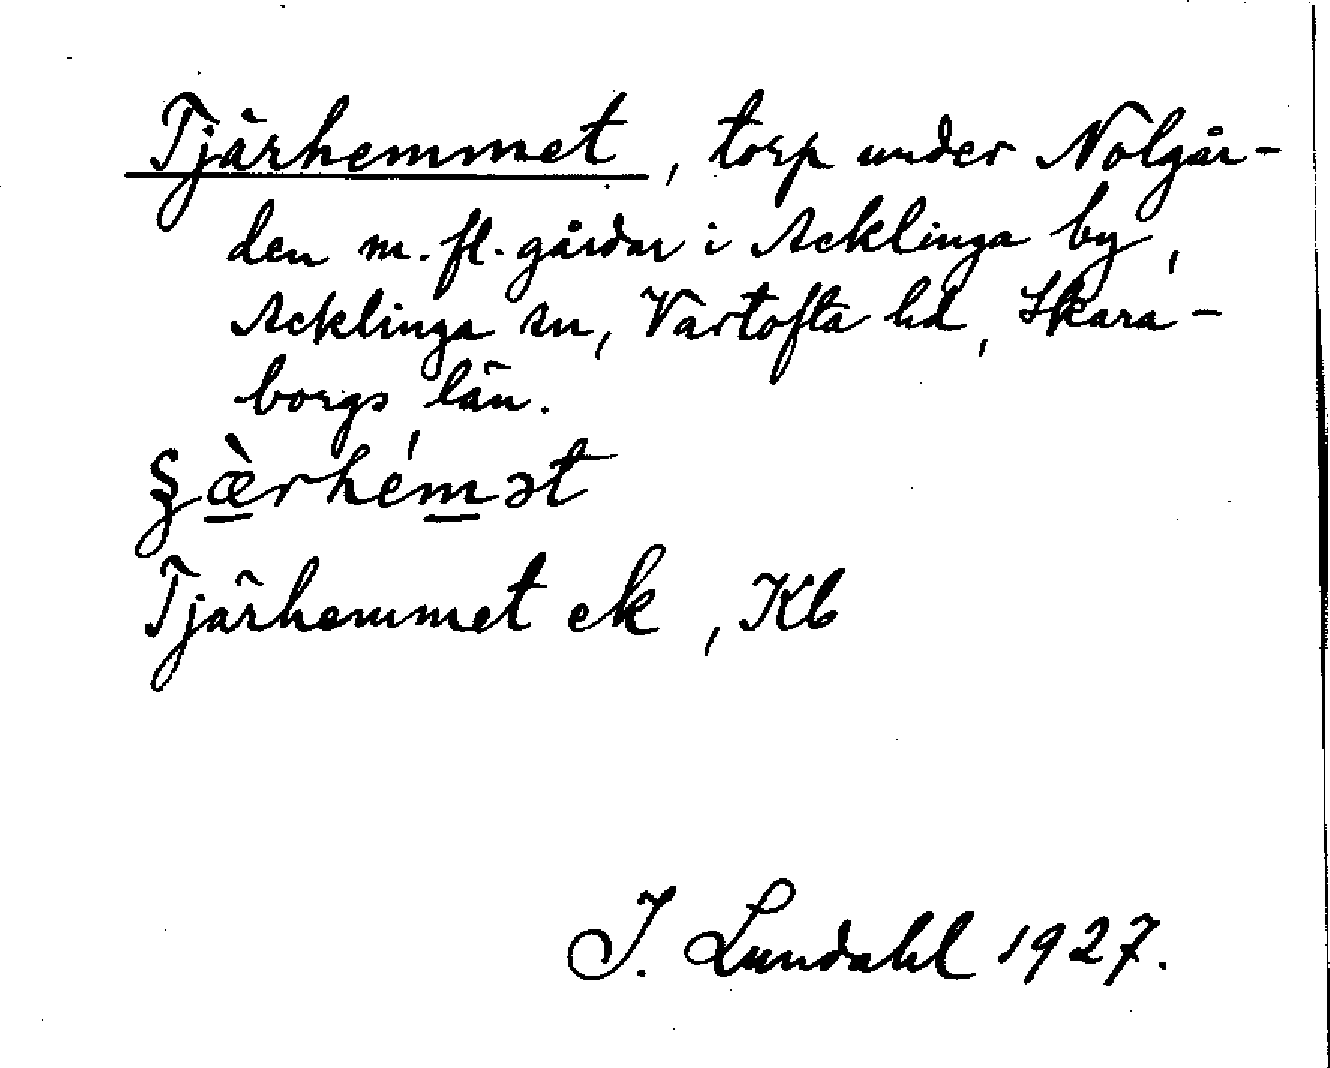 Tjärhemmet, torp under Nolgår-
den m. fl. gårdar i Acklinga by,
Acklinga sn, Vartofta hd, Skara-
borgs län.
ʂæ̀rhémət
Tjärhemmet ek, Kb
I. Lundahl 1927.